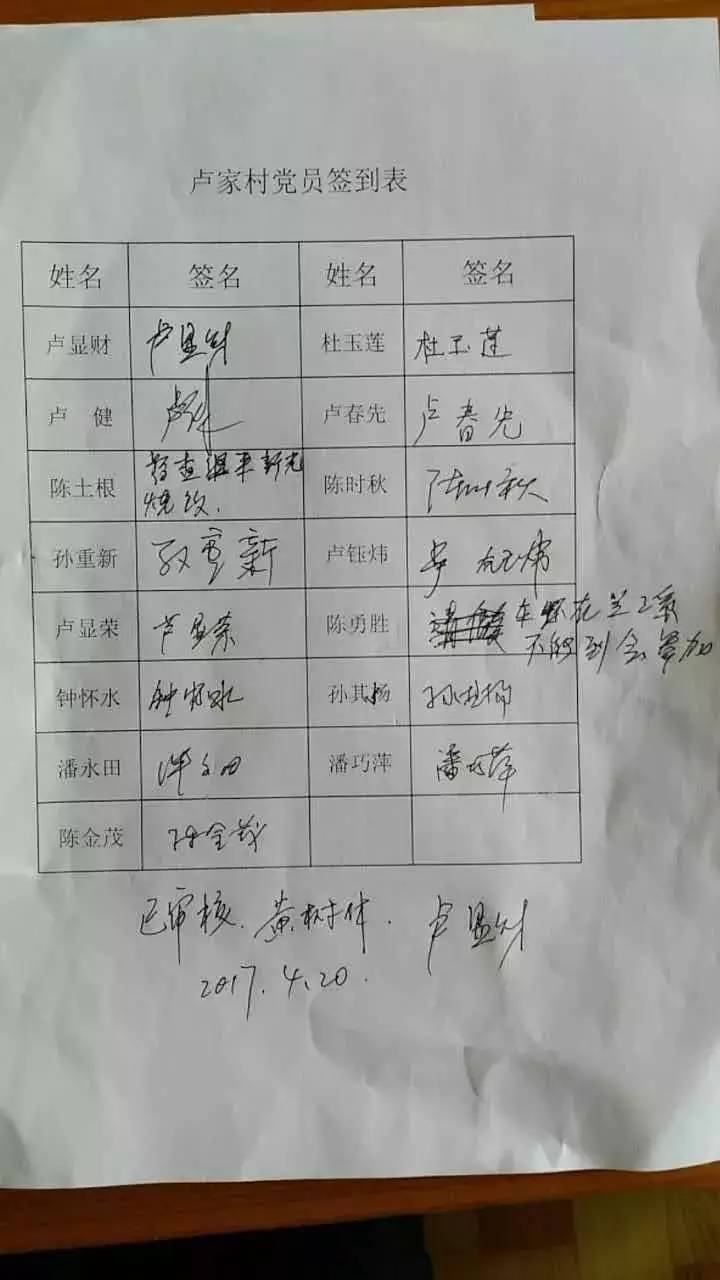 卢家村党员签到表
姓名 签名 姓名 签名
卢显财 卢显财 杜玉莲 杜玉莲
卢 健 卢健 卢春先 卢春先
陈土根 陈时秋 陈时秋
孙重新 孙重新 卢钰炜
卢显荣 芦显荣 陈勇胜
不能到会参加
钟怀水 钟怀水 孙其杨 孙其杨
潘永田 潘巧萍 潘巧萍
陈金茂 陈金茂
已审核. 黄树体. 卢显财
2017.4.20.